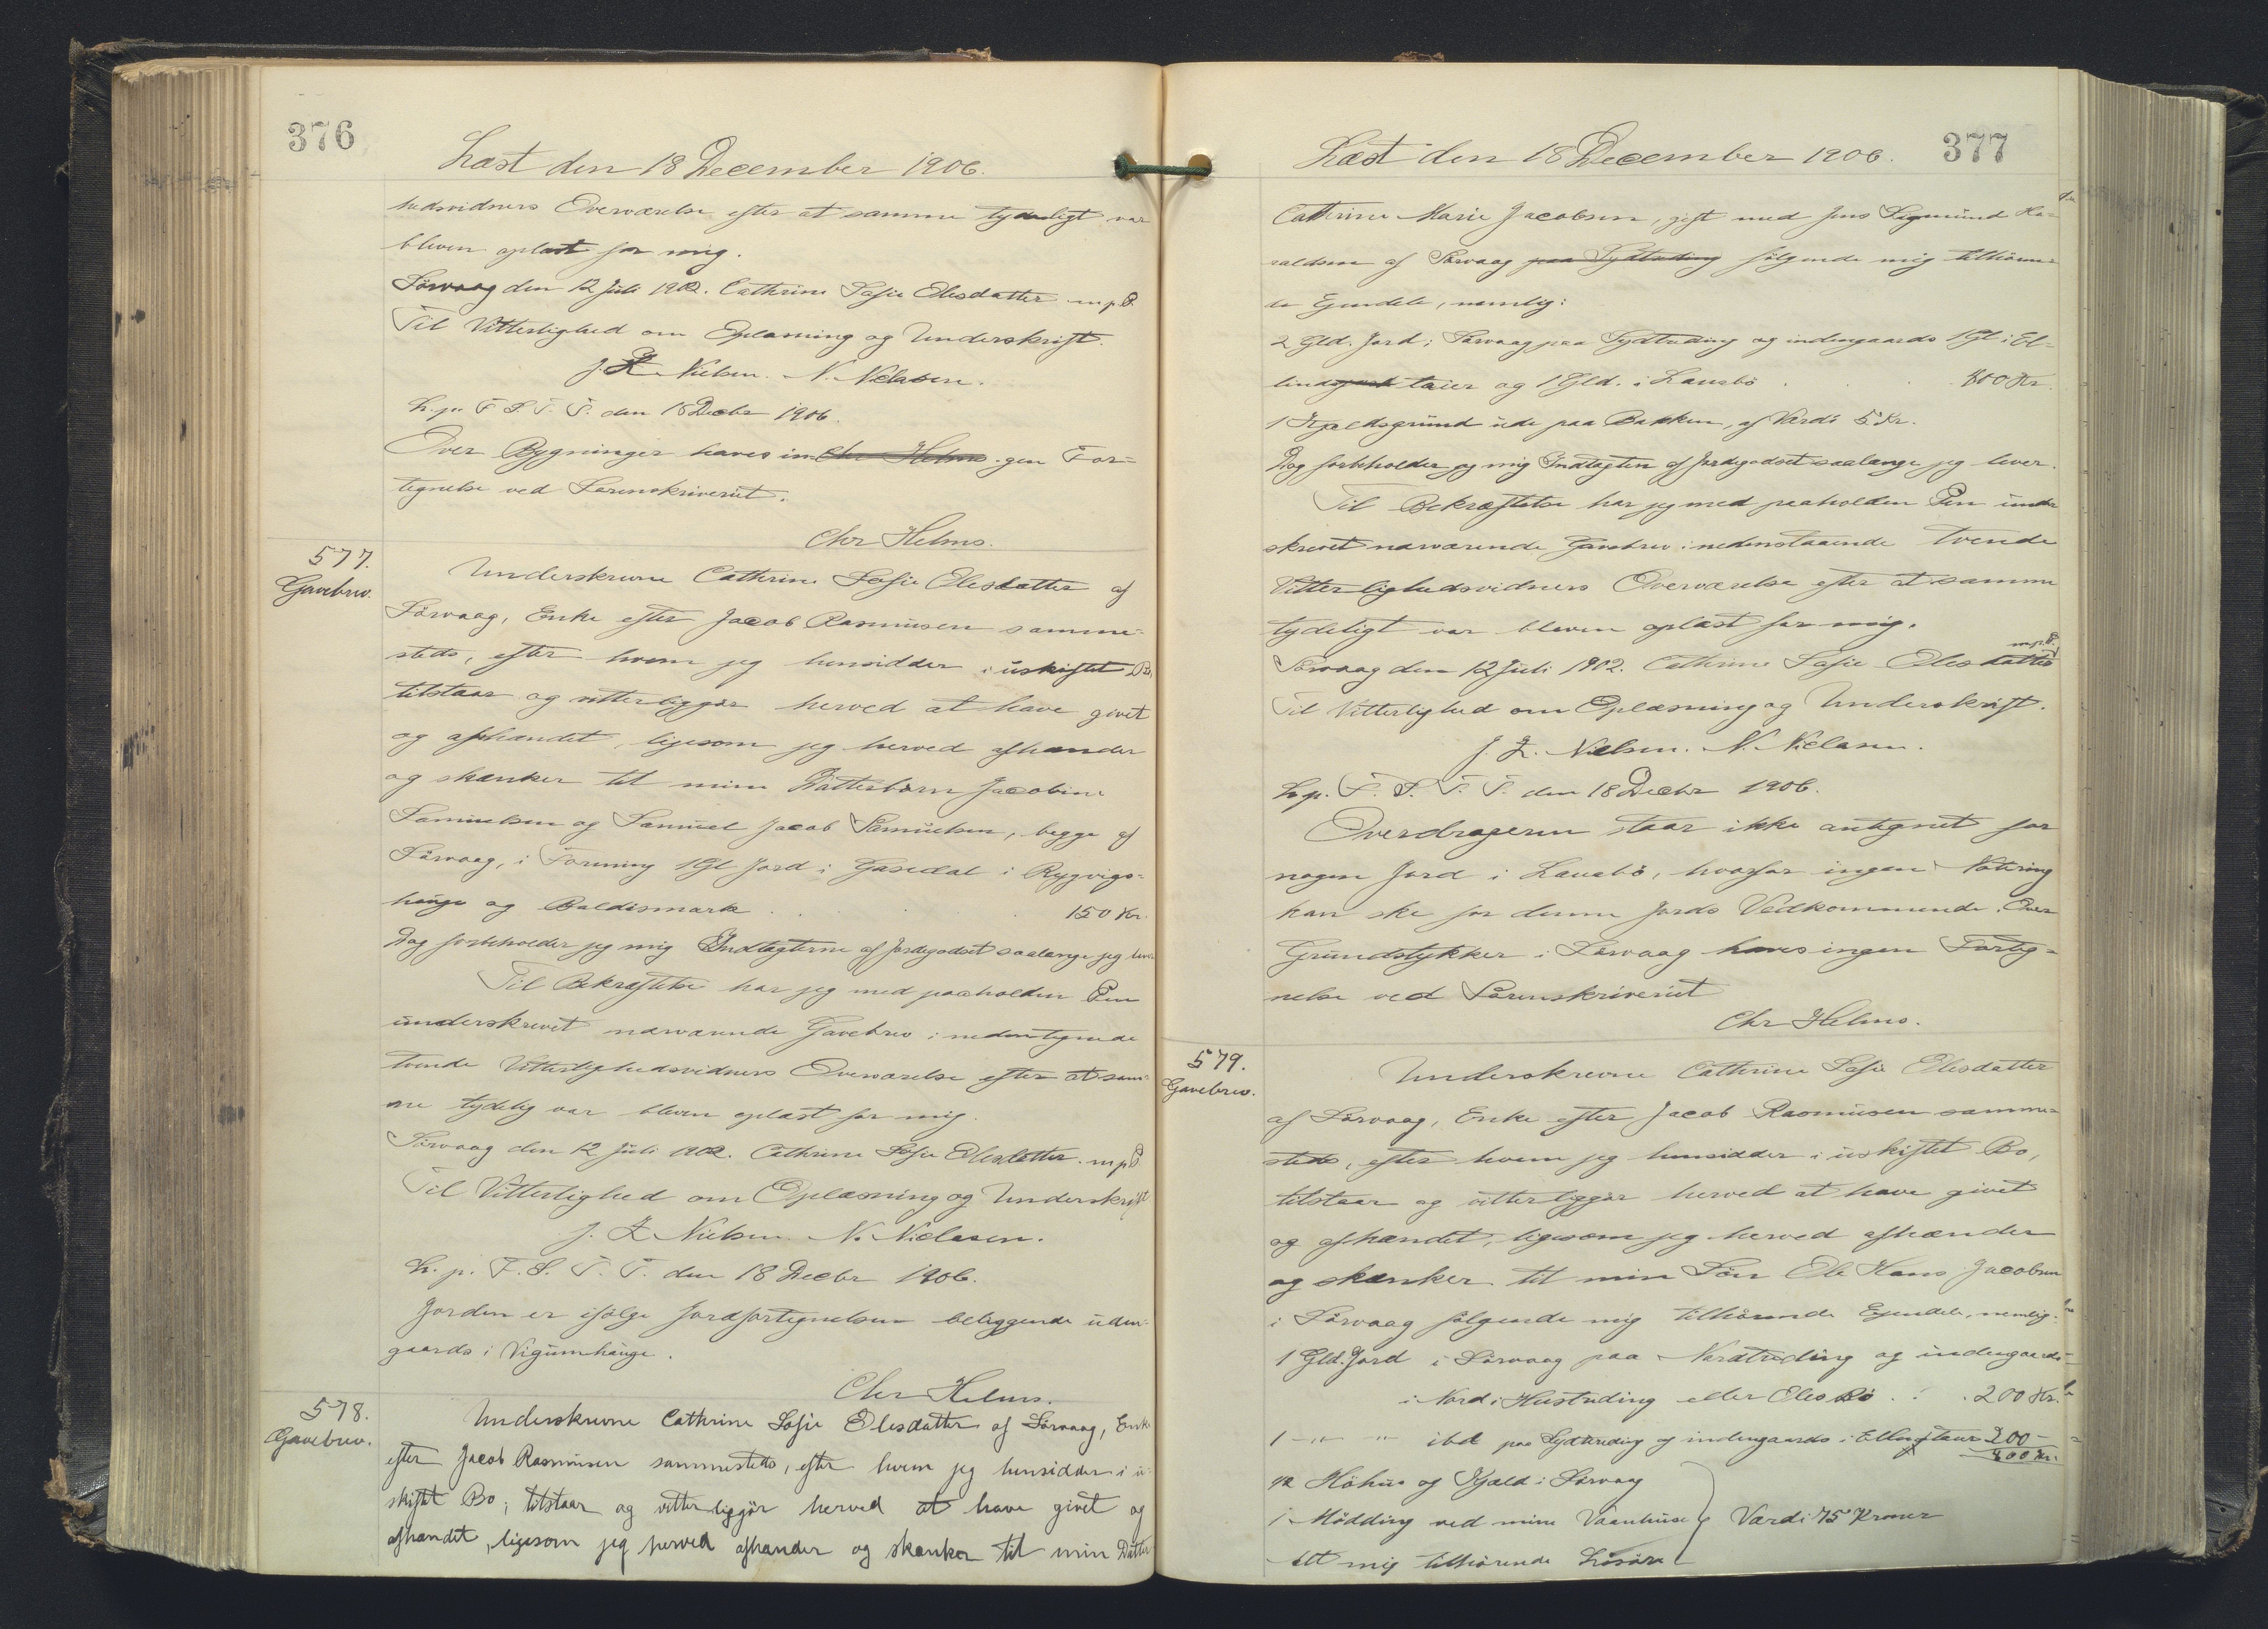 376
Læst den 18 December 1906.
hedsvidners Overværelse efter at samme tydeligt var
bleven oplæst for mig.
Sörvaag den 12 Juli 1902. Cathrine Sofie Olesdatter m.p.P.
Til Vitterlighed om Oplæsning og Underskrift.
J. Z. Nielsen. N. Niclasen.
L. p. F. S. T. T. den 18 Decbr 1906.
Over Bygninger haves in Chr Helms gen For-
tegnelse ved Sorenskriveriet.
Chr Helms.
577.
Gavebrev.
Underskrevne Cathrine Sofie Olesdatter af
Sörvaag, Enke efter Jacob Rasmussen samme-
steds, efter hvem jeg hensidder i uskiftet Bo,
tilstaar og vitterliggör herved at have givet
og afhændet, ligesom jeg herved afhænder
og skænker til mine Datterbörn Jacobine
Samuelsen og Samuel Jacob Samuelsen, begge af
Sörvaag, i Forening 1 Gl Jord i Gasedal i Rygvigs-
hauge og Baldismark . . . 150 Kr.
Dog forbeholder jeg mig Indtægterne af Jordegodset saalænge jeg lever
Til Bekræftelse har jeg med paaholden Pen
underskrevet nærværende Gavebrev i nedentegnede
tvende Vitterlighedsvidners Overværelse efter at sam-
me tydelig var bleven oplæst for mig.
Sörvaag den 12 Juli 1902. Cathrine Sofie Olesdatter. m.p.P.
Til Vitterlighed om Oplæsning og Underskrift
J. Z Nielsen N. Niclasen.
L. p. F. S. T. T. den 18 Decbr 1906.
Jorden er ifölge Jordfortegnelsen beliggende uden-
gaards i Vigumhauge.
Chr Helms.
578.
Gavebrev.
Underskrevne Cathrine Sofie Olesdatter af Sörvaag, Enke
efter Jacob Rasmussen sammesteds, efter hvem jeg hensidder i u-
skiftet Bo, tilstaar og vitterliggör herved at have givet og
afhændet, ligesom jeg herved afhænder og skænker til min Datter
377
Læst den 18 December 1906.
Cathrine Marie Jacobsen, gift med Jens Sigmund Ha-
raldsen af Sörvaag paa Sydtreding fölgende mig tilhören-
de Ejendele, nemlig:
2 Gld. Jord i Sörvaag paa Sydtreding og indengaards 1 Gl i El-
lind taier og 1 Gld. i Lausbö . . . 800 Kr.
1 Kjeldsgrund ude paa Bakken, af Værdi 5 Kr.
Dog forbeholder jeg mig Indtægten af Jordegodset saalænge jeg lever.
Til Bekræftelse har jeg med paaholden Pen under
skrevet nærværende Gavebrev i nedenstaaende tvende
Vitterlighedsvidners Overværelse efter at samme
tydeligt var bleven oplæst for mig.
Sörvaag den 12 Juli 1902. Cathrine Sofie Olesdatter m.p.P.
Til Vitterlighed om Oplæsning og Underskrift.
J. Z. Nielsen. N. Niclasen.
L. p. F. S. T. T. den 18 Decbr 1906.
Overdrageren staar ikke antegnet for
nogen Jord i Lausbö, hvorfor ingen Notering
kan ske for denne Jords Vedkommende. Over
Grundstykker i Sörvaag haves ingen Forteg-
nelse ved Sorenskriveriet
Chr Helms.
579.
Gavebrev.
Underskrevne Cathrine Sofie Olesdatter
af Sörvaag, Enke efter Jacob Rasmussen samme-
steds, efter hvem jeg hensidder i uskiftet Bo,
tilstaar og vitterliggör herved at have givet
og afhændet, ligesom jeg herved afhænder
og skænker til min Sön Ole Hans Jacobsen
i Sörvaag fölgende mig tilhörende Ejendele, nemlig:
1 Gld. Jord i Sörvaag paa Nordtreding og indengaards
i Nord i Hustreding eller Oles Bö . . . 200 Kr.
1 -"- " ibd paa Sydtreding og indengaards i Elling taier 200 -
400 Kr.
1/2 Höhus og Kjæld i Sörvaag
1 Mödding ved mine Vaanhuse } Værdi 75 Kroner
Alt mig tilhörende Lösöre